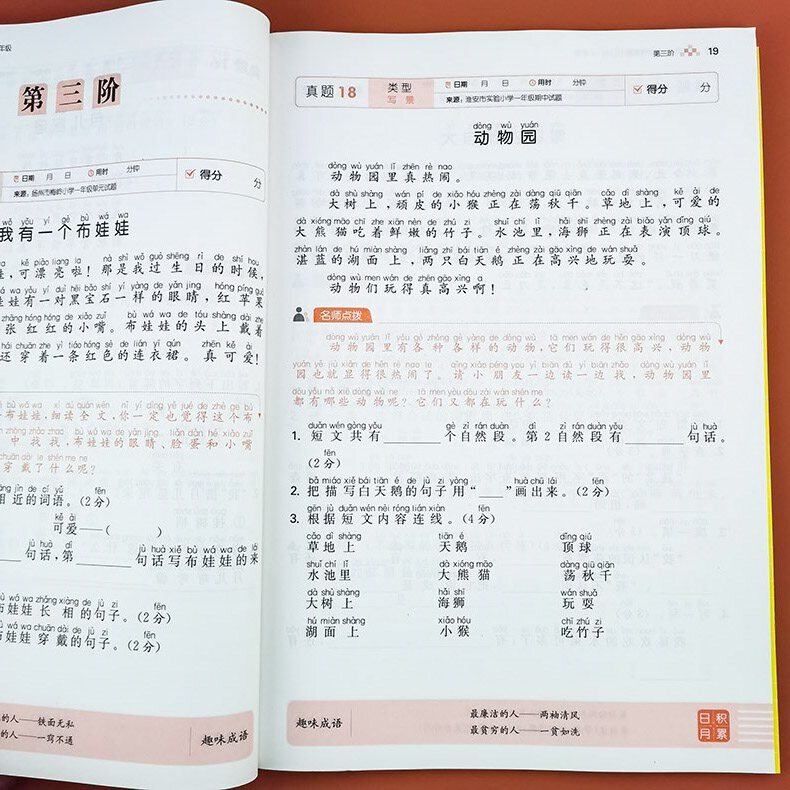 年级
第三阶
日期 月 日 用时 分钟 得分 分
来源：扬州市梅岭小学一年级单元试题
wǒ yǒu yí gè bù wá wa
我有一个布娃娃
kě piào liang la nà shì wǒ guò shēng rì de shí hou
，可漂亮啦！那是我过生日的时候，
wá wa yǒu yí duì hēi bǎo shí yí yàng de yǎn jing hóng píng guǒ
娃娃有一对黑宝石一样的眼睛，红苹果
zhāng hóng hóng de xiǎo zuǐ bù wá wa de tóu shàng dài zhe
张红红的小嘴。布娃娃的头上戴着
hái chuān zhe yì tiáo hóng sè de lián yī qún zhēn kě ài
还穿着一条红色的连衣裙。真可爱！
布娃娃，细读全文，你一定也觉得这个布
中找找，布娃娃的眼睛、脸蛋和小嘴
穿戴了什么呢？
xiāng jìn de cí yǔ fēn
相近的词语。（2分）
kě ài
可爱——（ ）
jù huà dì jù huà xiě bù wá wa de lái
句话，第 句话写布娃娃的来
bù wá wa zhǎng xiàng de jù zi fēn
布娃娃长相的句子。（2分）
bù wá wa chuān dài de jù zi fēn
布娃娃穿戴的句子。（2分）
的人——铁面无私
的人——一窍不通
趣味成语
第三阶 19
真题18 类型 写景 日期 月 日 用时 分钟 得分 分
来源：淮安市实验小学一年级期中试题
dòng wù yuán
动物园
dòng wù yuán lǐ zhēn rè nao
动物园里真热闹。
dà shù shàng wán pí de xiǎo hóu zhèng zài dàng qiū qiān cǎo dì shàng kě ài de
大树上，顽皮的小猴正在荡秋千。草地上，可爱的
dà xióng māo chī zhe xiān nèn de zhú zi shuǐ chí lǐ hǎi shī zhèng zài biǎo yǎn dǐng qiú
大熊猫吃着鲜嫩的竹子。水池里，海狮正在表演顶球。
zhàn lán de hú miàn shàng liǎng zhī bái tiān é zhèng zài gāo xìng de wán shuǎ
湛蓝的湖面上，两只白天鹅正在高兴地玩耍。
dòng wù men wán de zhēn gāo xìng a
动物们玩得真高兴啊！
名师点拨
dòng wù yuán lǐ yǒu gè zhǒng gè yàng de dòng wù tā men wán de hěn gāo xìng dòng wù
动物园里有各种各样的动物，它们玩得很高兴，动物
yuán yě jiù xiǎn de hěn rè nao le qǐng xiǎo péng yǒu yì biān dú yì biān zhǎo wǒ dòng wù yuán lǐ
园也就显得很热闹了。请小朋友一边读一边找我，动物园里
dōu yǒu nǎ xiē dòng wù ne tā men yòu dōu zài wán shén me
都有哪些动物呢？它们又都在玩什么？
duǎn wén gòng yǒu gè zì rán duàn dì zì rán duàn yǒu jù huà
1. 短文共有 个自然段。第2自然段有 句话。
fēn
（2分）
bǎ miáo xiě bái tiān é de jù zi yòng huà chū lái fēn
2. 把描写白天鹅的句子用“ ”画出来。（2分）
gēn jù duǎn wén nèi róng lián xiàn fēn
3. 根据短文内容连线。（4分）
cǎo dì shàng tiān é dǐng qiú
草地上 天鹅 顶球
shuǐ chí lǐ dà xióng māo dàng qiū qiān
水池里 大熊猫 荡秋千
dà shù shàng hǎi shī wán shuǎ
大树上 海狮 玩耍
hú miàn shàng xiǎo hóu chī zhú zi
湖面上 小猴 吃竹子
趣味成语
最廉洁的人——两袖清风
最贫穷的人——一贫如洗
日积月累